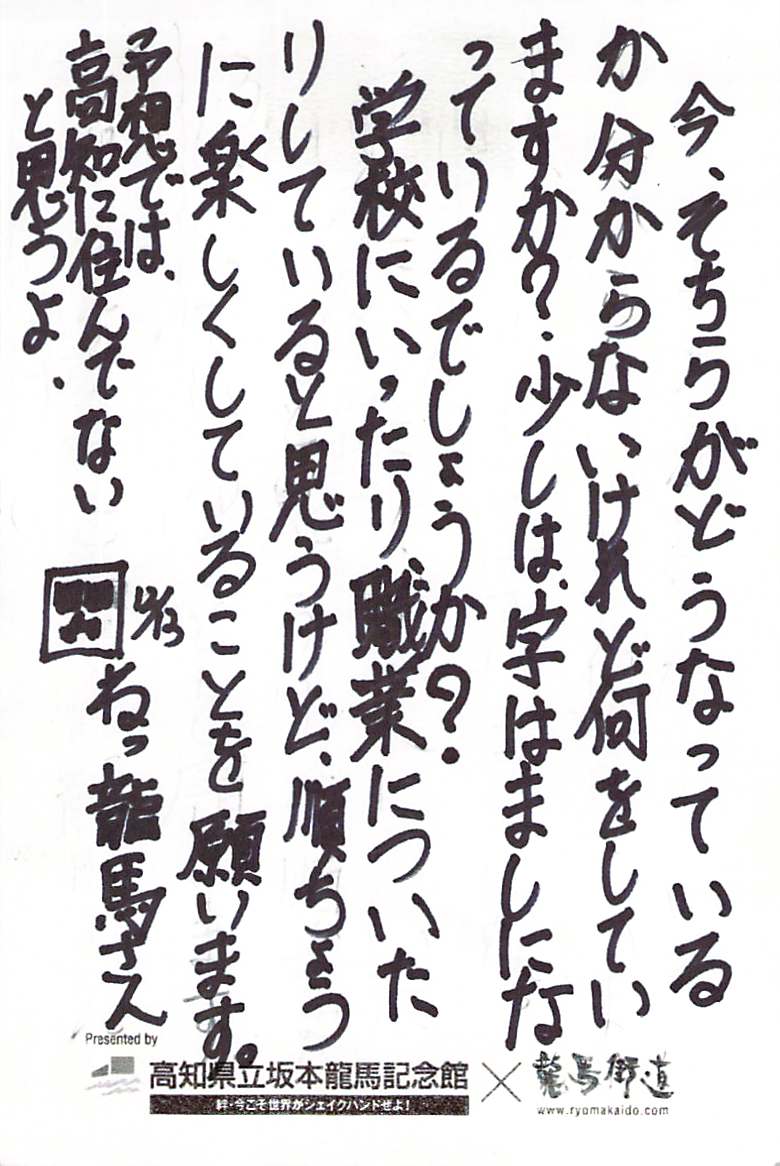 今、そちらがどうなっている
か分からないけれど何をしてい
ますか?.少しは、字はましにな
っているでしょうか?.
学校にいったり、職業についた
りしていると思うけど、順ちょう
に楽しくしていることを願います。
予想では、
高知に住んでない
と思うよ.
ねっ龍馬さん
Presented by
高知県立坂本龍馬記念館
絆・今こそ世界がシェイクハンドせよ!
×
龍馬街道
www.ryomakaido.com